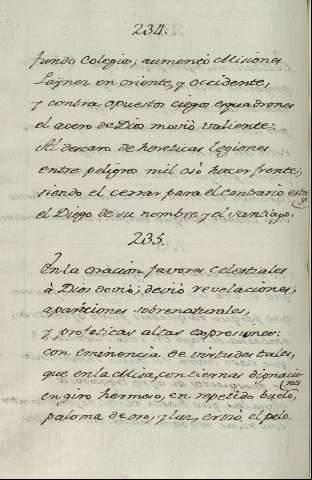 234.
fundo Colegios; aumentó Misiones
Laynez en oriente, y Occidente,
y contra opuestos ciegos esquadrones
el acero de Dios movió valiente:
Al descaro de hereticas legiones
entre peligros mil osó hacer frente;
siendo el cerrar para el contrario estrago
el Diego de su nombre y el Santiago.
235.
En la oracion favores Celestiales
à Dios devió; devió revelaciones;
apariciones sobrenaturales,
y profeticas altas expresiones:
con eminencia de virtudes tales,
que en la Misa, con tiernas dignaciones
en giro hermoso, en repetido buelo,
paloma de oro, y luz, el pelo.